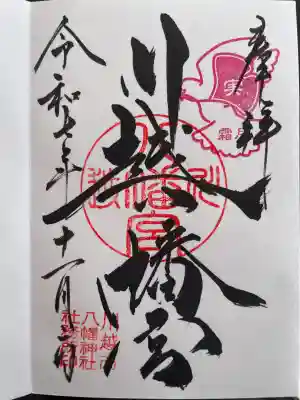 奉拝
実
霜月
川越八幡宮
令和七年十一月
川越市
八幡神社
社務所印